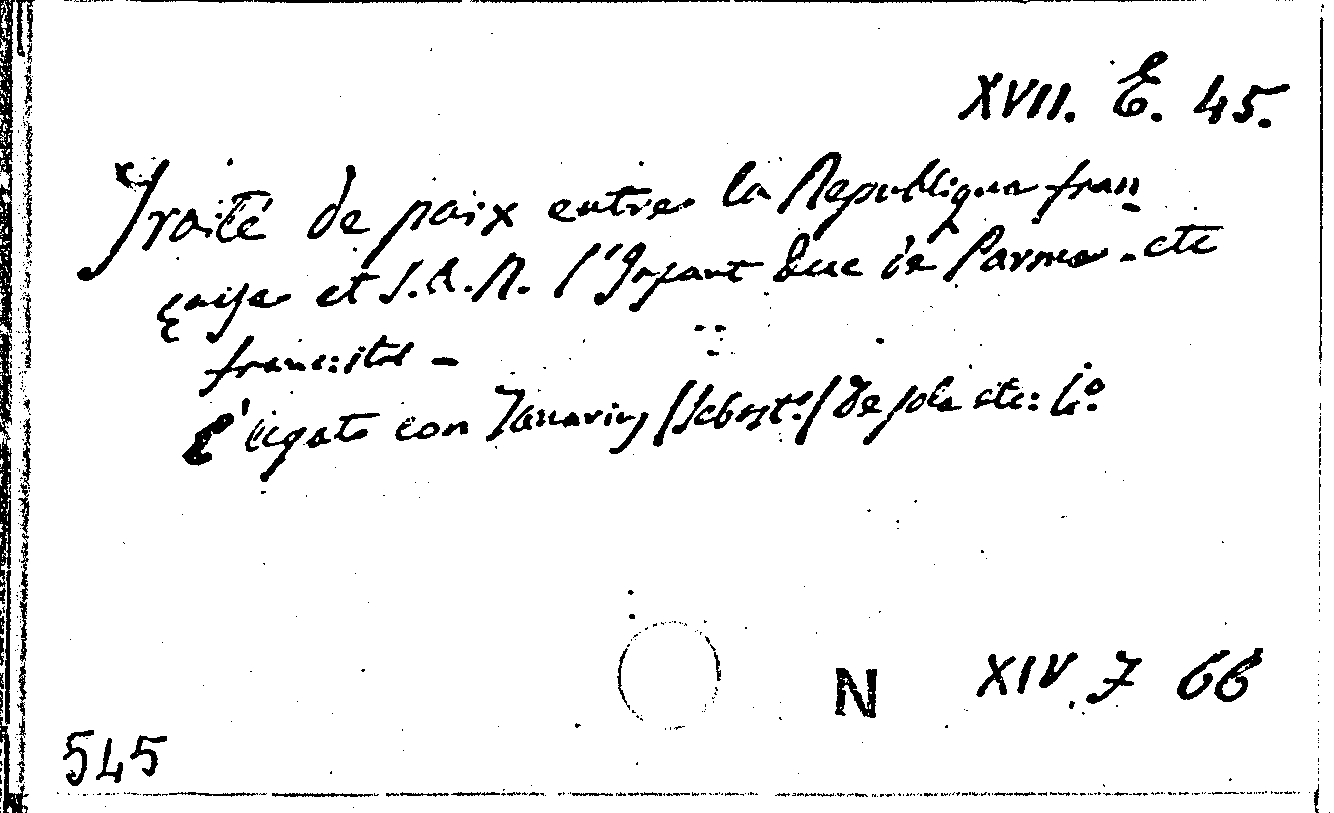 XVII. E. 45.
Traité de paix entre la Republique fran
çaise et S. A. R. l'Infant Duc de Parme - etc
franc: ital -
È legato con Zanarini (Sebast.°) De sola etc: 4.°
N XIV. J 66
545